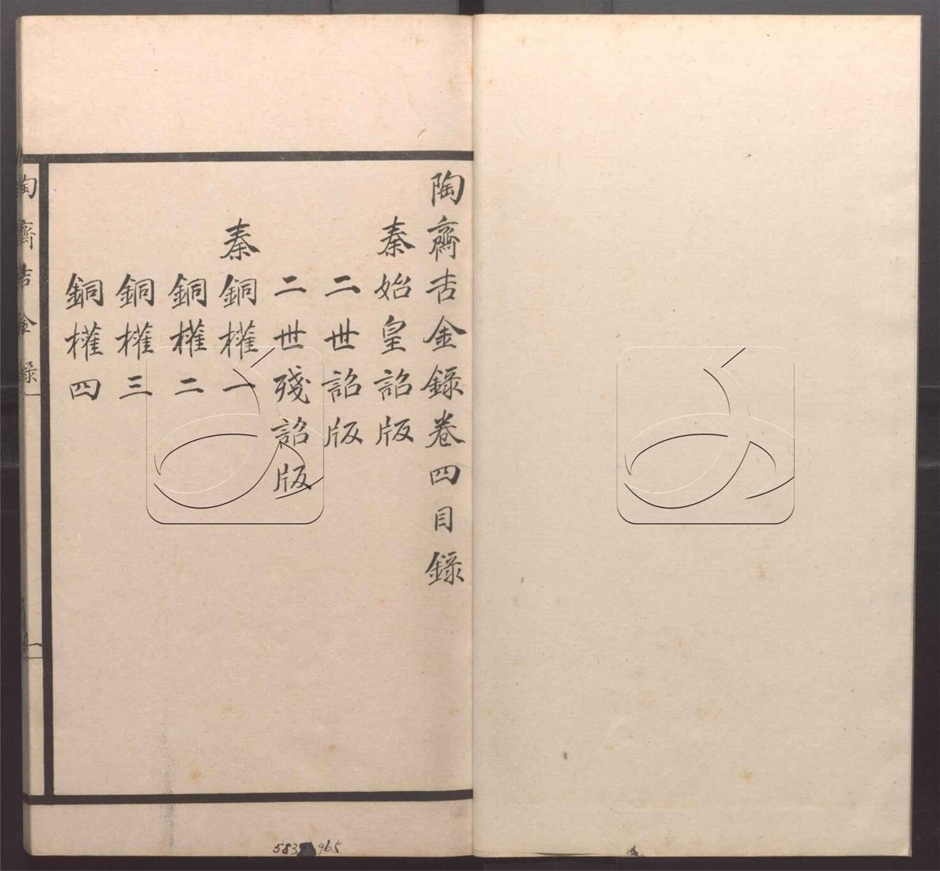 陶齋吉金錄卷四目錄
秦始皇詔版
二世詔版
二世殘詔版
秦銅權一
銅權二
銅權三
銅權四
陶齋吉金錄